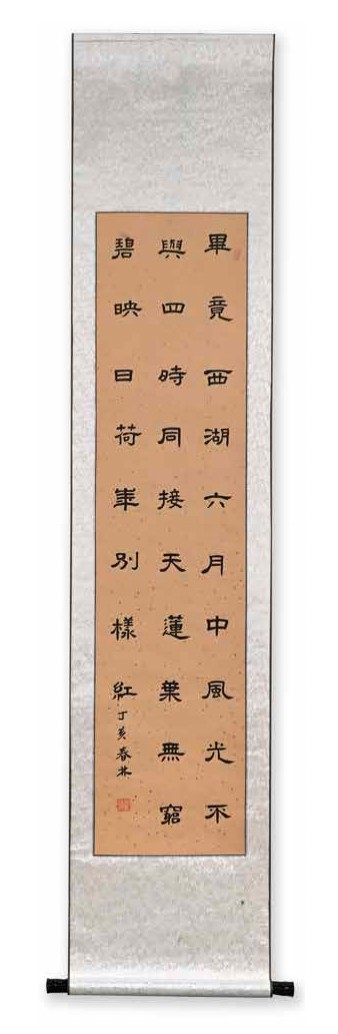 畢竟西湖六月中風光不
與四時同接天蓮葉無窮
碧映日荷華別樣紅
丁亥春林